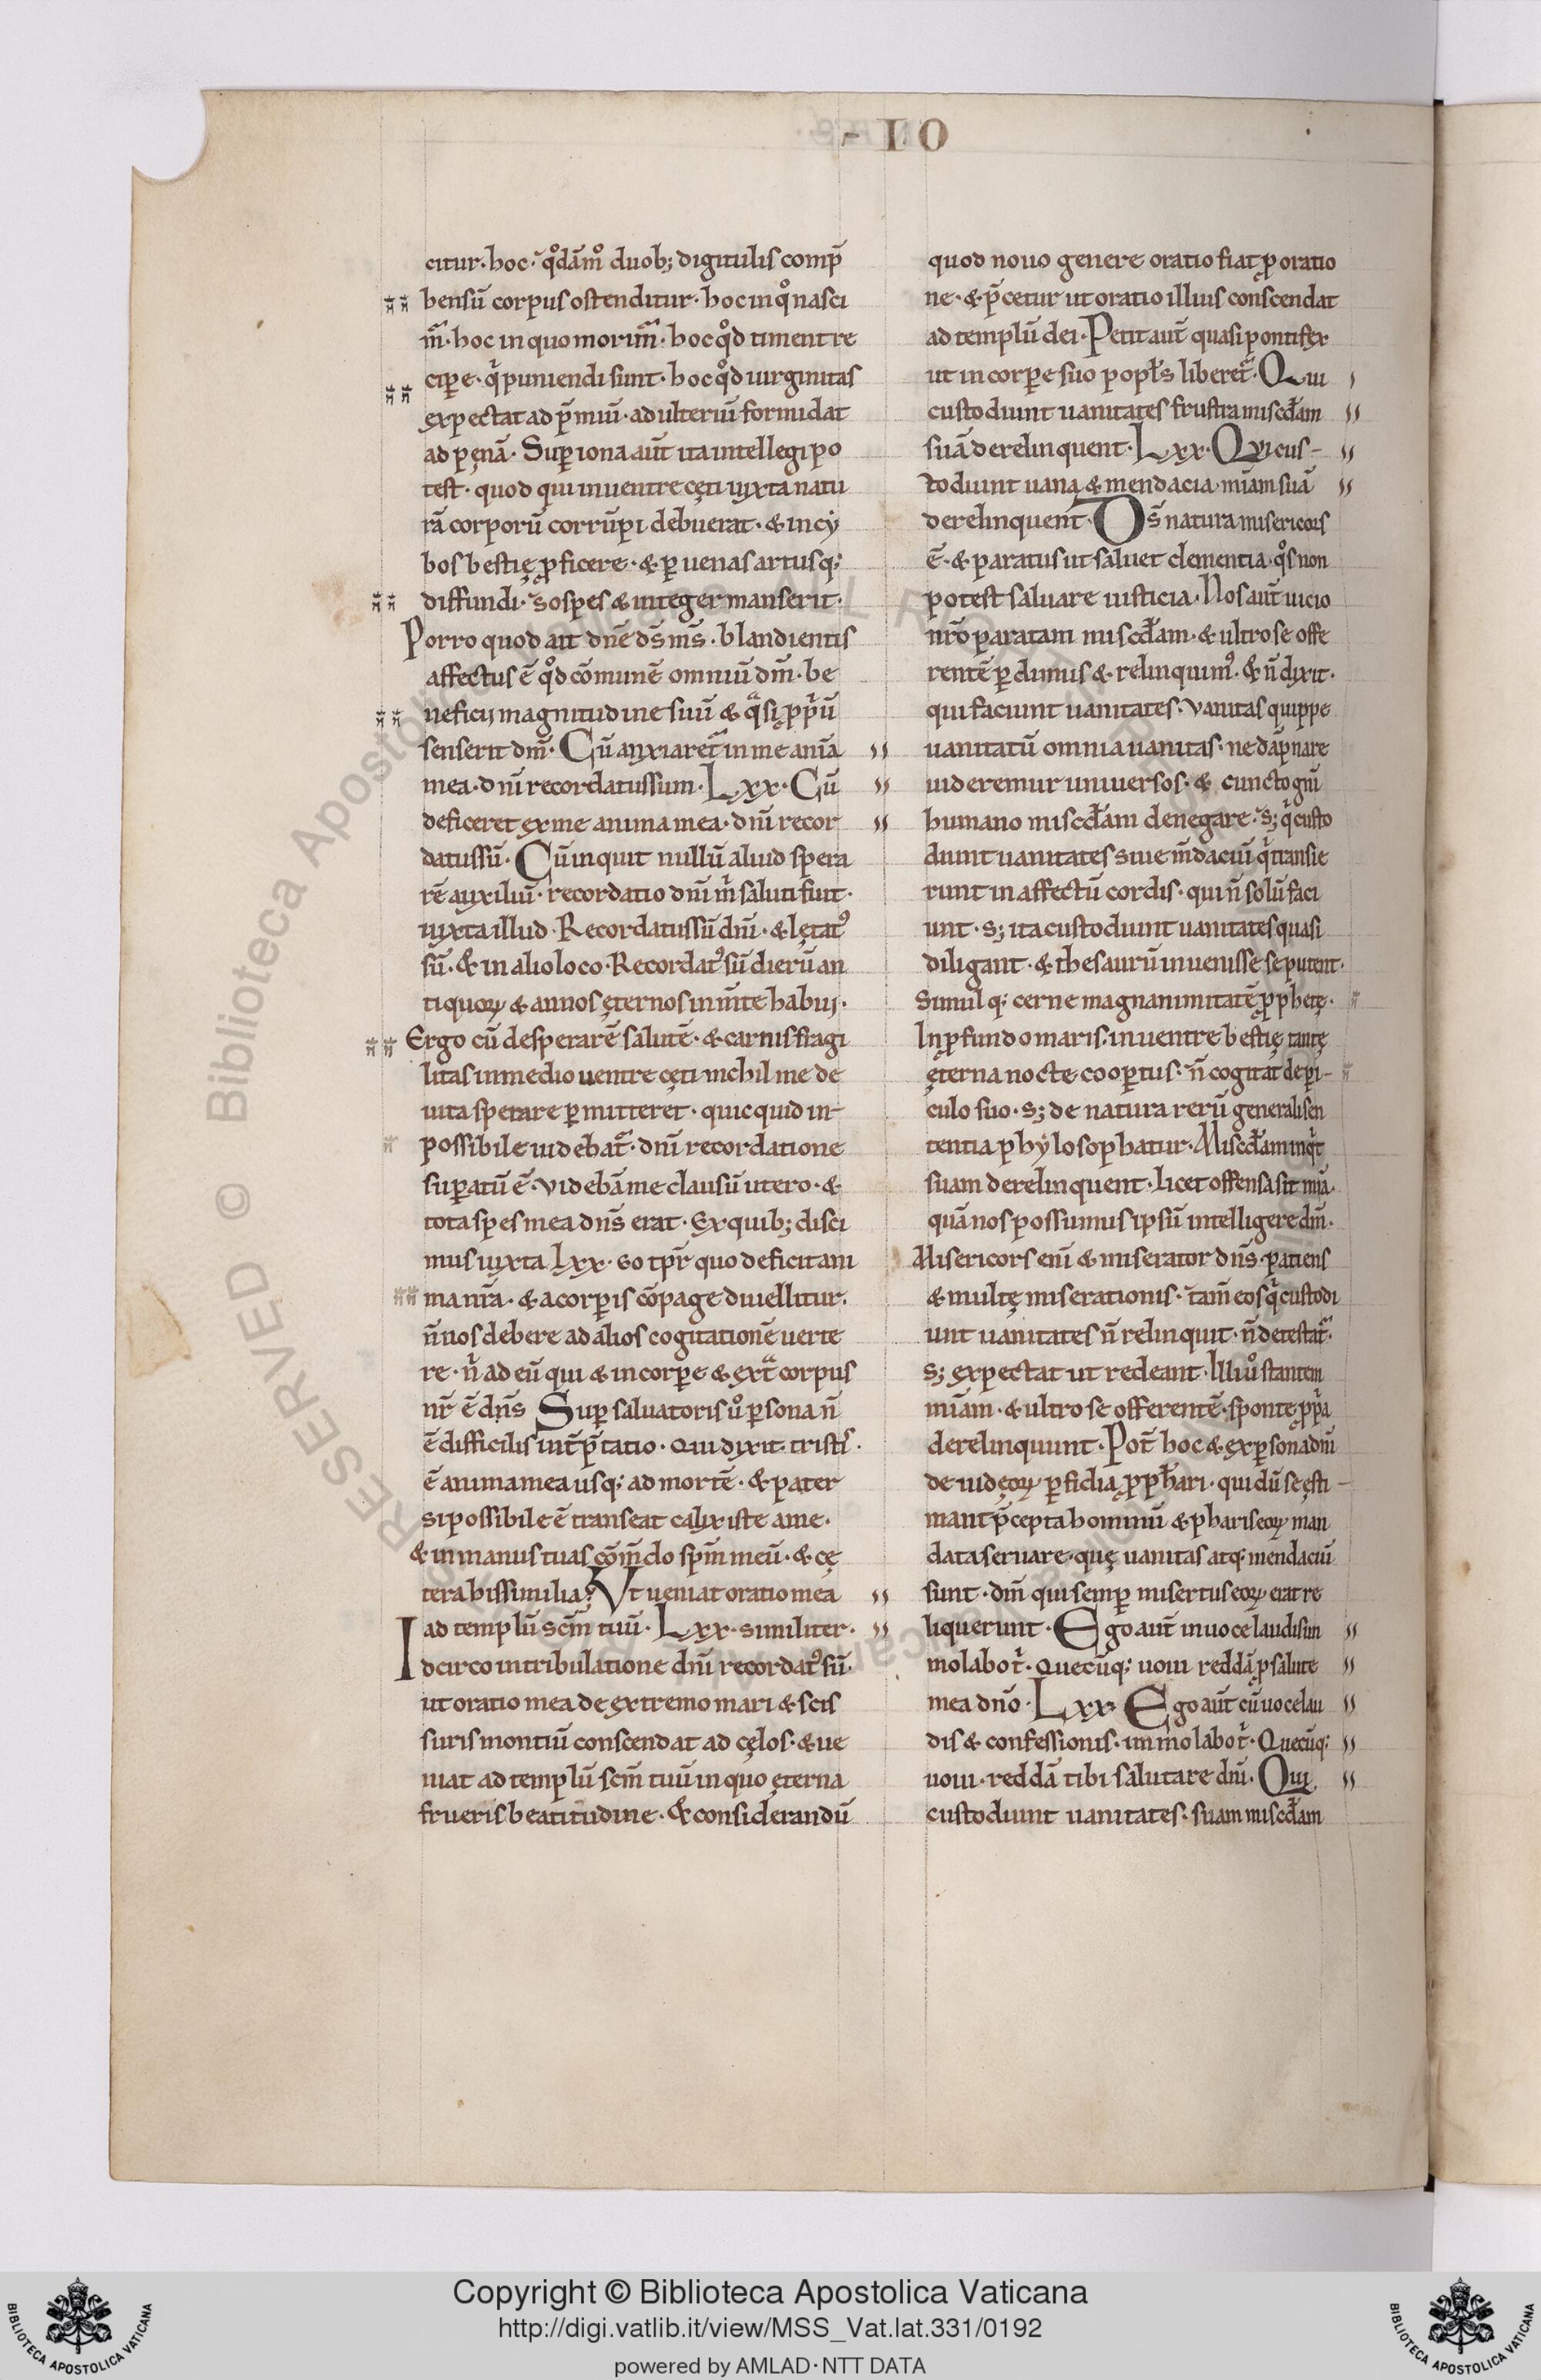 - IO
citur·hoc·qͦdāmͦ duob; digitulis comp̄
hensū corpus ostenditur·hoc in qͦ nasci
m̄·hoc in quo morim̄·hoc qͦd timent re
cipe·q̇ puniendi sunt·hoc qͦd uirginitas
expectat ad p̄miū·adulteriū formidat
ad pęnā·Suꝑ iona aūt ita intellegi po
test·quod qui in uentre cęti iuxta natu
rā corporū corrūpi debuerat·& in cy
bos bestię ꝓficere·& ꝑ uenas artusq;
diffundi·sospes & integer manserit·
Porro quod ait dn̄e ds̄ ms̄·blandientis
affectus ē qͦd cōmunē omniū dm̄·be
neficij magnitudine suū & qͣsi ꝓpͥū
senserit dm̄·Cū anxiaret᷑ in me anīa
mea·dnī recordatus sum·Lxx·Cū
deficeret ex me anima mea·dnī recor
datus sū·Cū inquit nullū aliud spera
rē auxiliū·recordatio dnī m̍ saluti fuit·
iuxta illud·Recordatus sū dnī·& lętatꝰ
sū·& in alio loco·Recordatꝰ sū dierū an
tiquoꝝ & annos ęternos in m̄te habui·
Ergo cū desperarē salutē·& carnis fragi
litas in medio uentre cęti nichil me de
uita sperare ꝑmitteret·quicquid in-
possibile uidebat᷑·dnī recordatione
suꝑatū ē·videbā me clausū utero·&
tota spes mea dns̄ erat·Ex quib; disci
mus iuxta lxx·eo tp̄r quo deficit ani
ma nr̄a·& a corꝑis cōpage diuellitur·
n̄ nos debere ad alios cogitationē uerte
re·n̍ ad eū qui & in corꝑe & extͣ corpus
nr̄ ē dn̄s Suꝑ saluatoris uͦ ꝑsona n̄
ē difficilis int̄p̄tatio·Qui dixit·trist̍·
ē anima mea usq; ad mortē·& pater
si possibile ē transeat calix iste a me·
& in manus tuas cōm̄do sp̄m meū·& cę
tera his similia·Vt ueniat oratio mea
ad templū scm̄ tuū·Lxx·similiter·
Idcirco in tribulatione dnī recordatꝰ sū·
ut oratio mea de extremo mari & scis
suris montiū conscendat ad cęlos·& ue
niat ad templū scm̄ tuū in quo ęterna
frueris beatitudine·& considerandū
quod nouo genere oratio fiat ꝓ oratio
ne·& p̄cetur ut oratio illius conscendat
ad templū dei·Petit aūt quasi pontifex
ut in corꝑe suo popl̄s liberet᷑·Qui
custodiunt uanitates frustra miscd̄am
suā derelinquent·Lxx·Qvi cus-
todiunt uana & mendacia·mīam suā
derelinquent·Ds̄ natura misericors
ē·& paratus ut saluet clementia·qͦs non
potest saluare iusticia·Nos aūt uicio
nr̄o paratam miscd̄am·& ultro se offe
rentē ꝑdimus & relinquimꝰ·& n̄ dixit·
qui faciunt uanitates·vanitas quippe
uanitatū omnia uanitas·ne dāpnare
uideremur uniuersos·& cuncto gnī
humano miscd̄am denegare·s; q̍ custo
diunt uanitates siue m̄daciū q̍ transie
runt in affectū cordis·qui n̄ solū faci
unt·s; ita custodiunt uanitates quasi
diligant·& thesaurū inuenisse se putent·
Simul q; cerne magnanimitatē ꝓphetę·
In ꝓfundo maris·in uentre bestię tantę
ęterna nocte cooꝑtus·n̄ cogitat de ꝑi-
culo suo·s; de natura rerū generali sen
tentia phylosophatur·Miscd̄am inq̍t
suam derelinquent·licet offensa sit mīa·
quā nos possumus ipsū intelligere dm̄·
Misericors enī & miserator dns̄·patiens
& multę miserationis·tam̄ eos q̍ custodi
unt uanitates n̄ relinquit·n̄ detestat᷑·
s; expectat ut redeant·Illi uͦ stantem
mīam·& ultro se offerentē·sponte ꝓpͥa
derelinquunt·Pot̄ hoc & ex ꝑsona dnī
de iudęoꝝ ꝑfidia ꝓph̄ari·qui dū se ęsti-
mant p̄cepta hominū & phariseoꝝ man
data seruare·quę uanitas atq; mendaciū
sunt·dm̄ qui semꝑ misertus eoꝝ erat re
liquerunt·Ego aūt in uoce laudis im
molabo t̍·Quecūq; uoui reddā ꝓ salute
mea dnō·Lxx Ego aūt cū uoce lau
dis & confessionis·immolabo t̍·Quecūq;
uoui·reddā tibi salutare dnī·Qui
custodiunt uanitates·suam miscd̄am
© Biblioteca Apostolica Vaticana
Copyright © Biblioteca Apostolica Vaticana
http://digi.vatlib.it/view/MSS_Vat.lat.331/0192
powered by AMLAD·NTT DATA
BIBLIOTECA APOSTOLICA VATICANA
BIBLIOTECA APOSTOLICA VATICANA